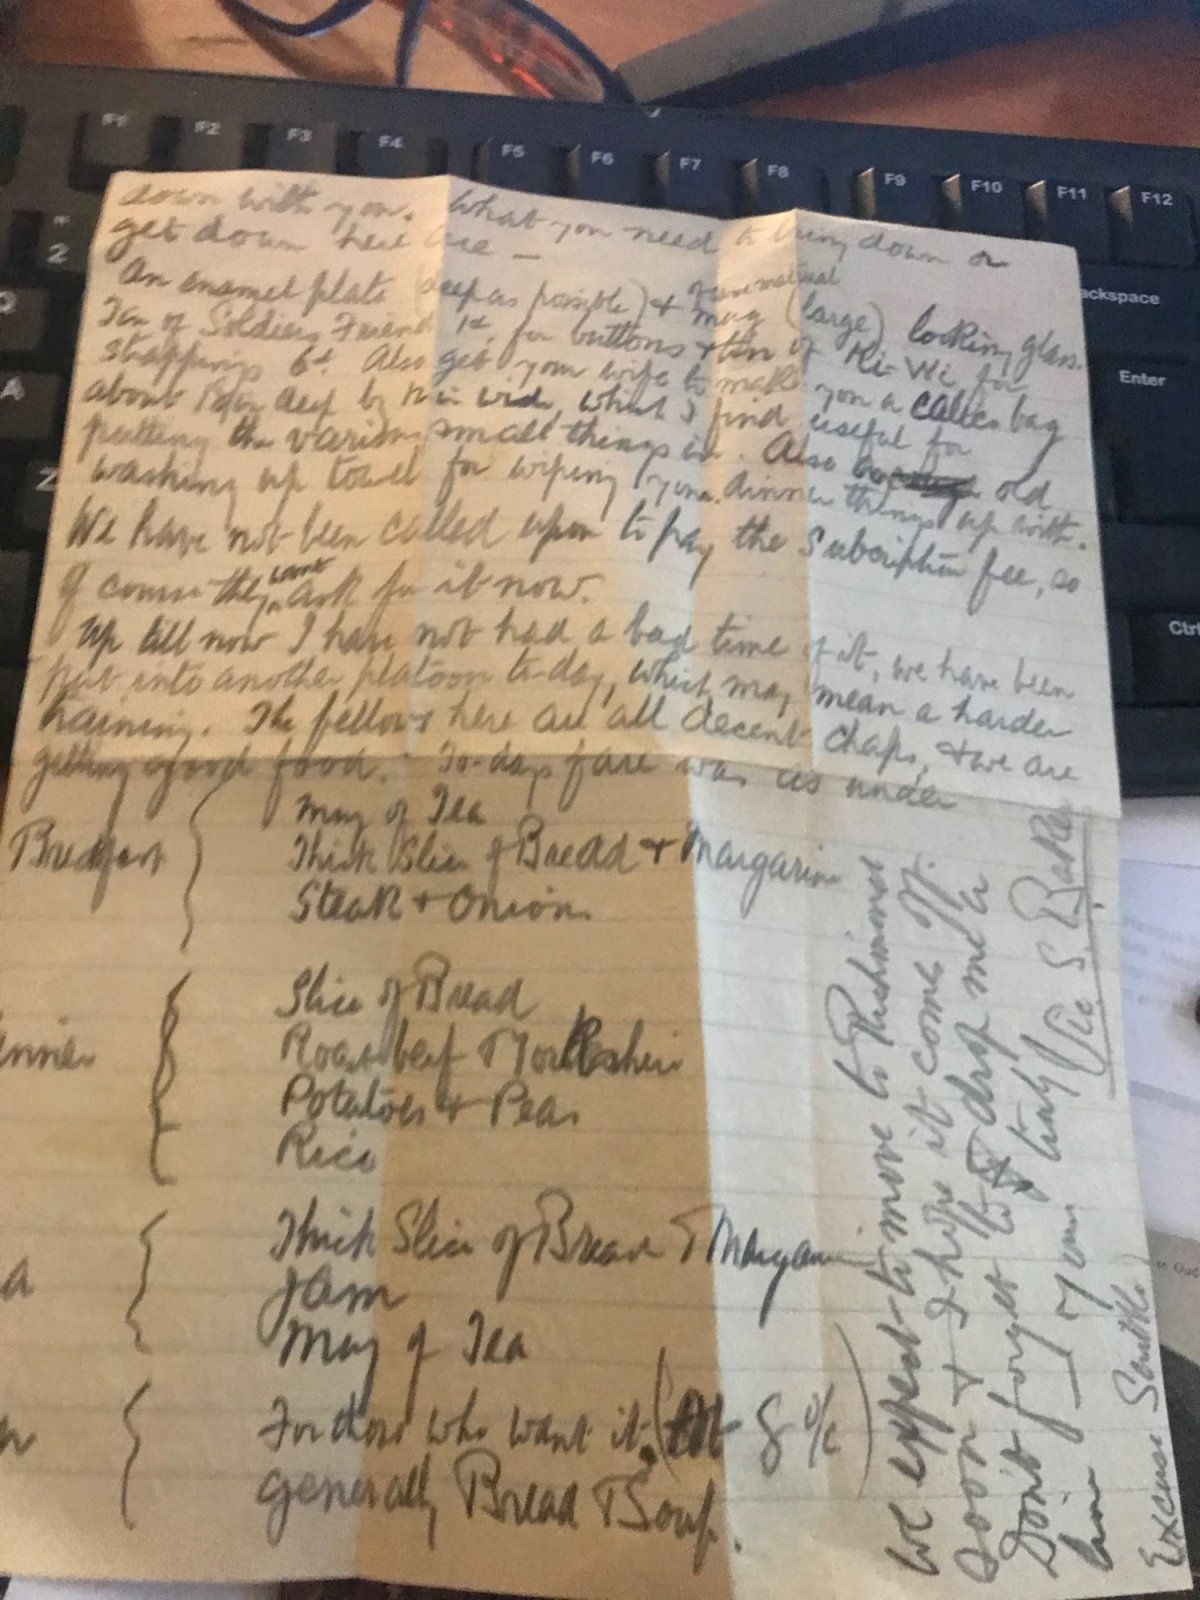 down with you. What you need to bring down or
get down here are —
An enamel plate (deep as possible) + mug of same material (large) looking glass.
Tin of Soldiers Friend 1d. for buttons + tin of Ki-Wi for
strappings 6d. Also get your wife to make you a calico bag
about deep by 12 in wide, which I find useful for
putting the various small things in. Also old
washing up towel for wiping your dinner things up with.
We have not been called upon to pay the Subscription fee, so
of course they won't ask for it now.
Up till now I have not had a bad time of it, we have been
put into another platoon to-day, which may mean a harder
training. The fellows here are all decent chaps, + we are
getting good food. To-days fare was as under
Breakfast
Mug of Tea
Thick Slice of Bread + Margarine
Steak + Onions
inner
Slice of Bread
Roast beef + Yorkshire
Potatoes + Peas
Rice
a
Thick Slice of Bread + Margarine
Jam
Mug of Tea
For those who want it (
generally Bread + Soup.
We expect to move to
soon + I hope it comes off.
Don't forget to drop me a
line — Yours truly Vic S. Baker
Excuse Scribble
F1
F2
F3
F4
F5
F6
F7
F8
F9
F10
F11
F12
2
A
Z
ackspace
Enter
Ctr